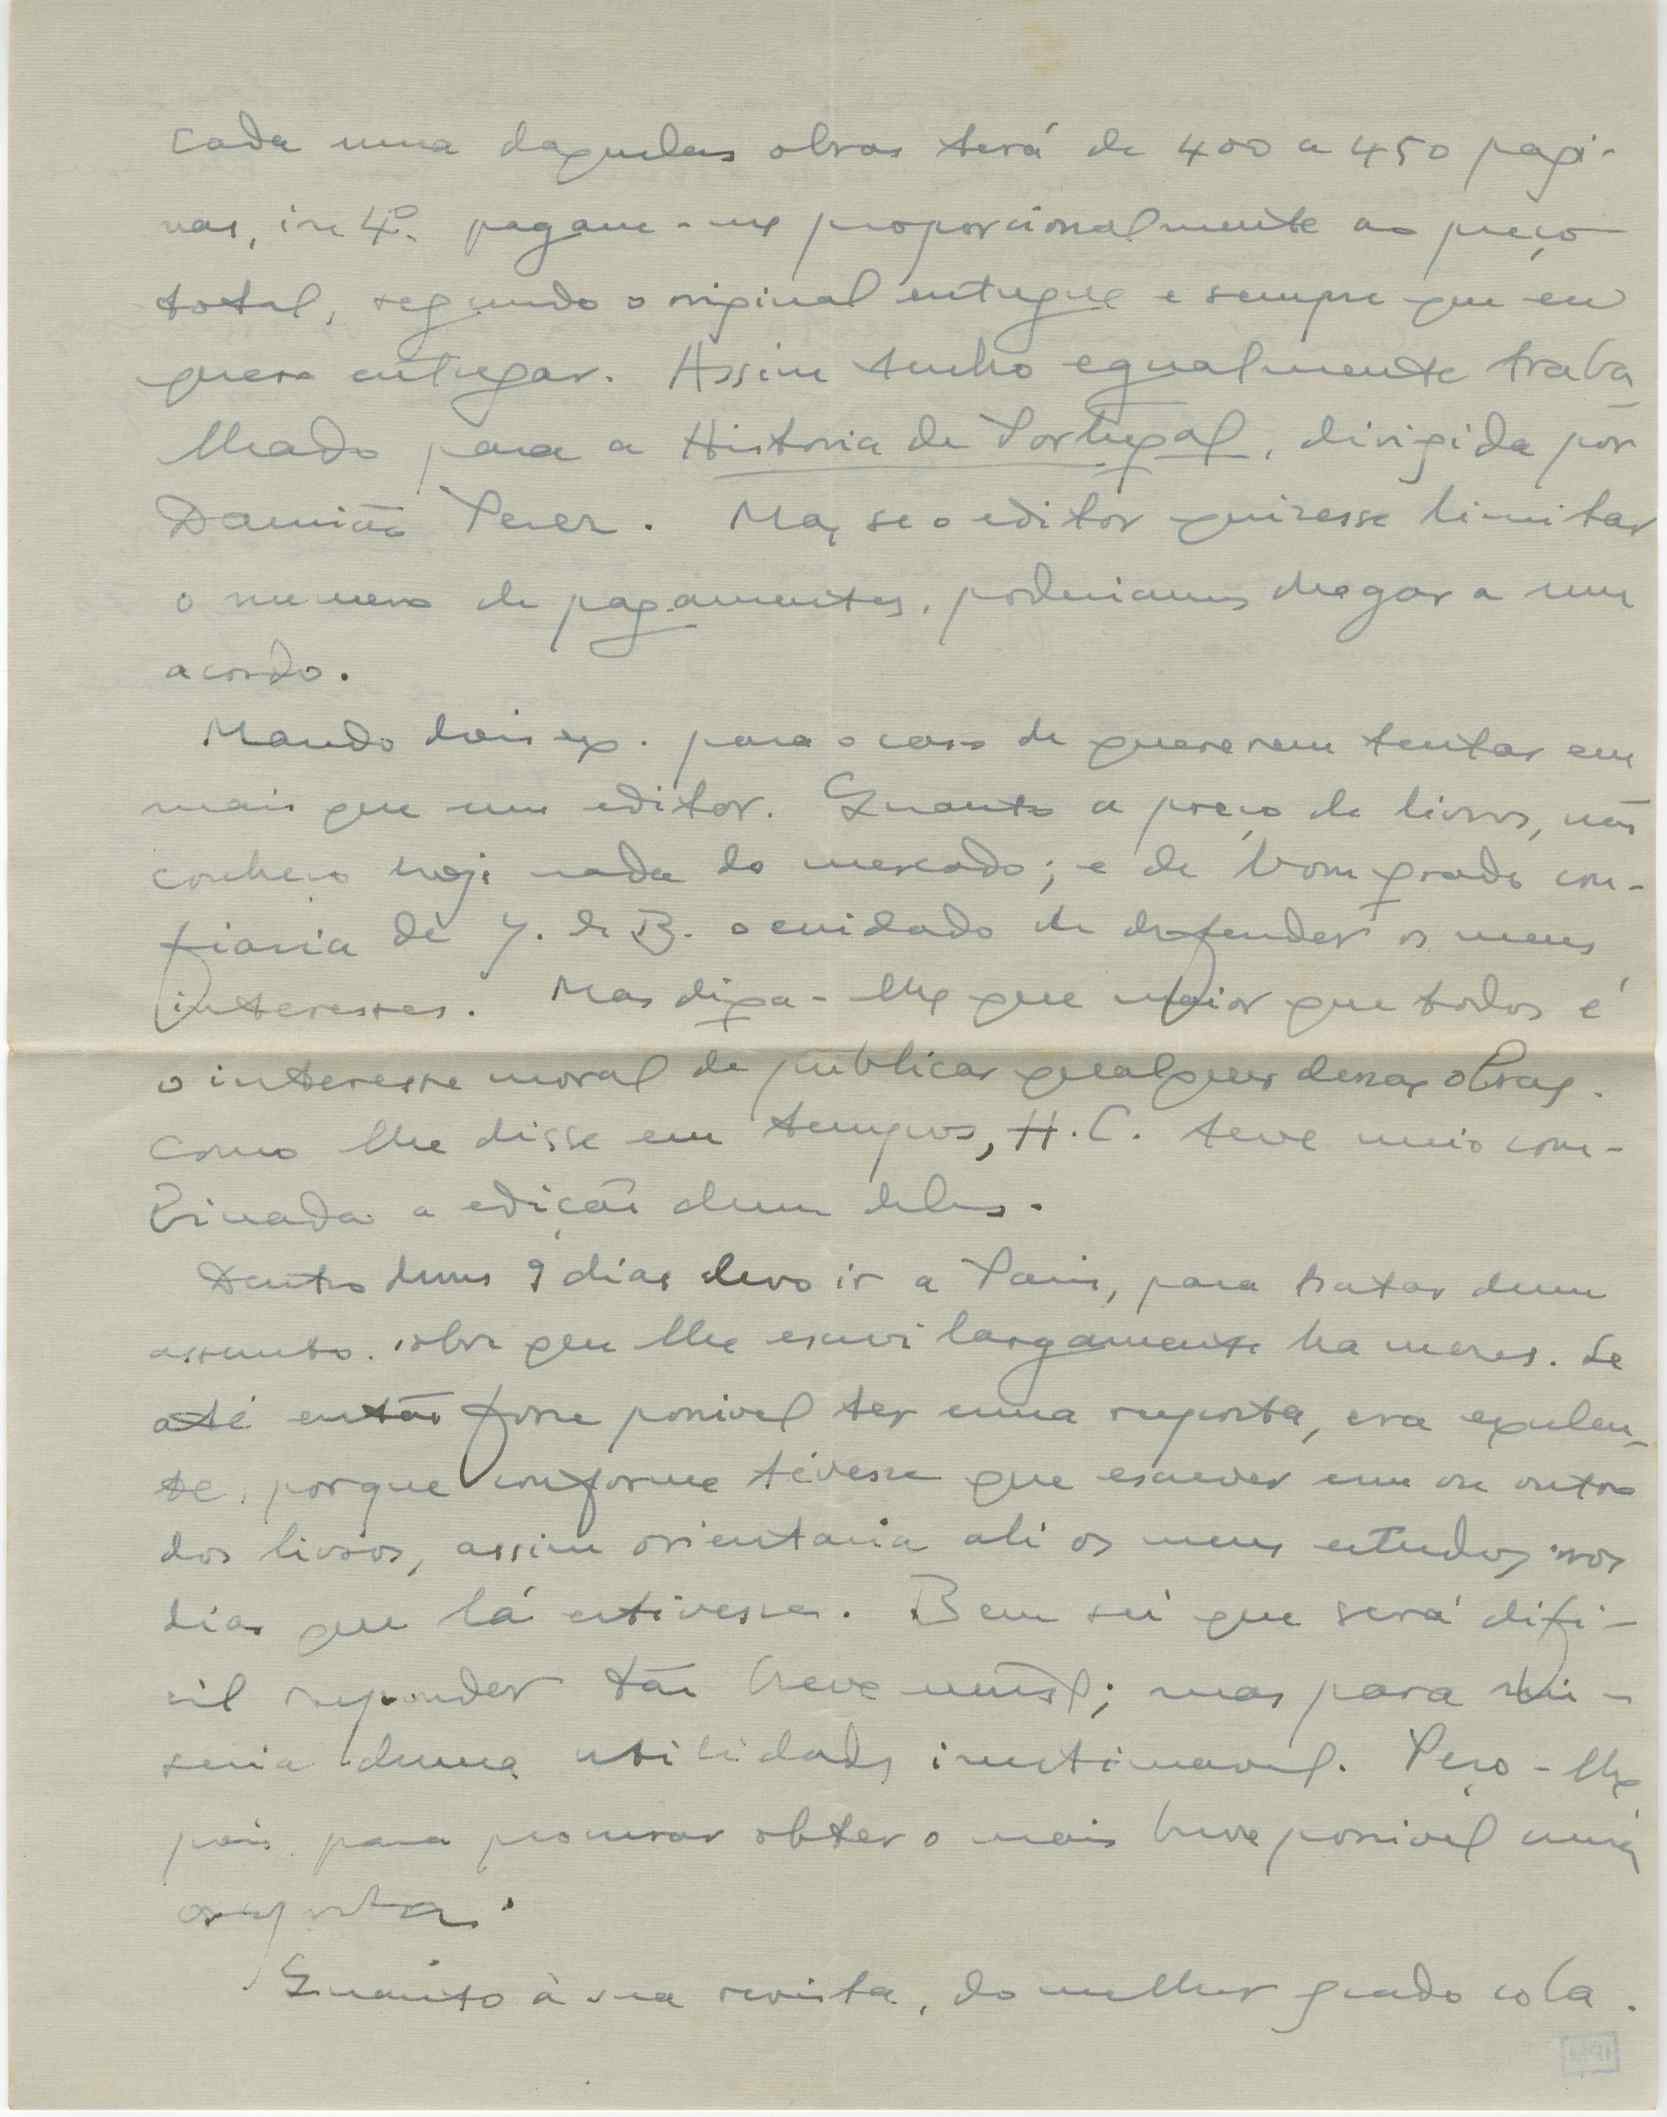 Cada uma daquelas obras terá de 400 a 450 pagi-
nas, in 4º. pagam-me proporcionalmente ao preço
total, segundo o original entregue e sempre que eu
quero entregar. Assim tenho egualmente traba-
lhado para a Historia de Portugal, dirigida por
Damião Perez. Mas, se o editor quizesse limitar
o numero de pagamentos, poderiamos chegar a um
acordo.
Mando dois ex. para o caso de quererem tentar em
mais que um editor. Quanto a preço de livros, não
conheço hoje nada do mercado; e de bom grado con-
fiaria de J. de B. o cuidado de defender os meus
interesses. Mas diga-lhe que maior que todos é
o interesse moral de publicar qualquer dessas obras.
Como lhe disse em tempos, H.C. teve meio com-
binada a edição dum deles.
Dentro duns 9 dias devo ir a Paris, para tratar dum
assunto. sobre que lhe escrevi largamente ha meses. Se
até então fosse possivel ter uma resposta, era exelen-
te, porque conforme tivesse que escrever um ou outro
dos livros, assim orientaria ali os meus estudos nos
dias que lá estivesse. Bem sei que será difi-
cil responder tão brevemente; mas para mim
seria duma utilidade inestimavel. Peço-lhe
pois para procurar obter o mais breve possivel uma
resposta.
Quanto à sua revista, do melhor grado cola.